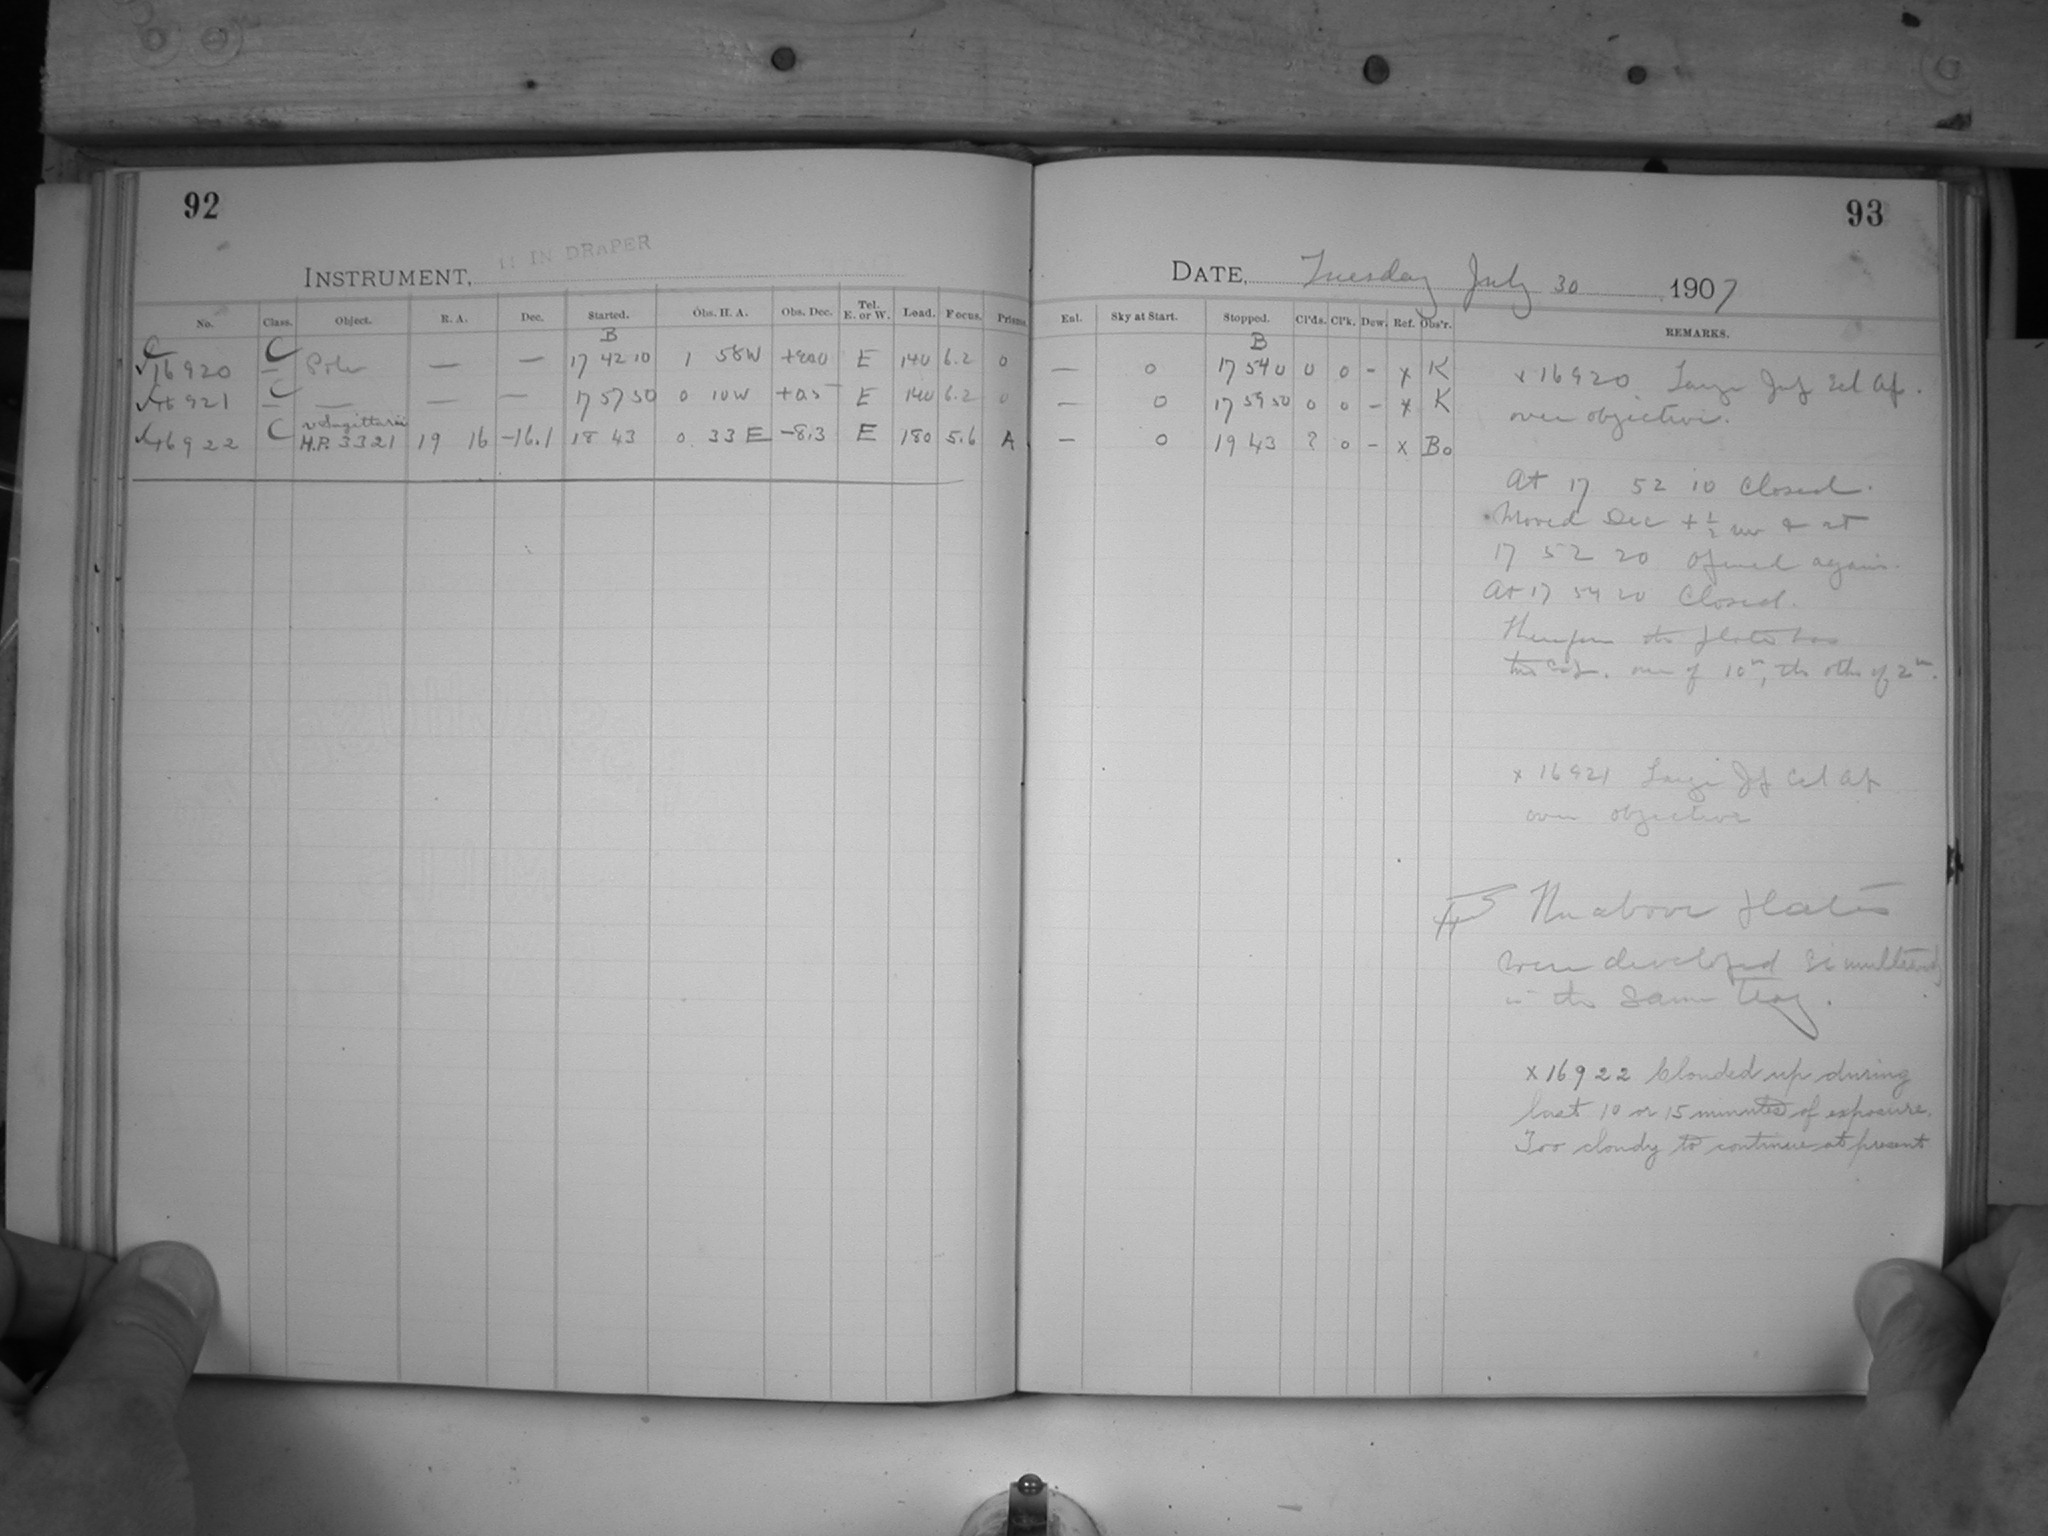 92
93
INSTRUMENT, 11 IN DRAPER
DATE, Tuesday July 30 1907
No. Class. Object. R. A. Dec. Started. Obs. H. A. Obs. Dec. Tel. E. or W. Load. Focus. Prisms. Enl. Sky at Start. Stopped. Cl'ds. Cl'k. Dew. Ref. Obs'r. REMARKS.
B B
C 16920 C — Pole — — 17 42 10 1 58W E 140 6.2 0 — 0 17 54 0 0 – x K
16921 C — — — — 17 57 50 0 10W E 140 6.2 0 — 0 17 59 50 0 0 – x K
C ν Sagittarii
16922 H.P. 3321 19 16 –16.1 18 43 0 33 E –8.3 E 180 5.6 A — 0 19 43 ? 0 – x Bo
x 16920 Large
over objective.
At 17 52 10 Closed.
Moved Dec + ½ rev & at
17 52 20 opened again.
At 17 54 20 Closed.
Therefore the plate has
two exp. one of 10m, the other of 2m.
x 16921 Large
over objective
The above plates
were developed simultaneously
in the same tray.
x 16922 Clouded up during
last 10 or 15 minutes of exposure.
Too cloudy to continue at present